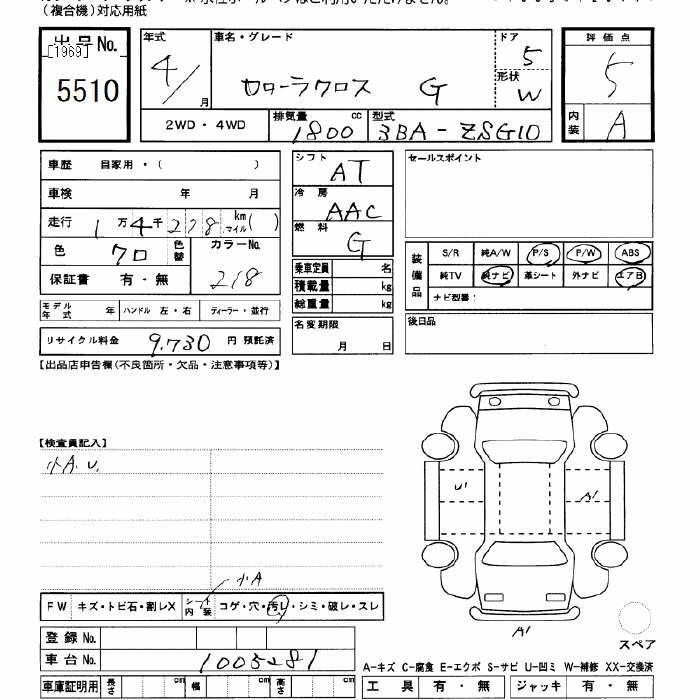 (複合機)対応用紙
出品No.
[1969]
5510
年式 4/ 月
車名・グレード カローラクロス G
ドア 5
形状 W
評価点 5
内装 A
2WD・4WD
排気量 1800 cc
型式 3BA-ZSG10
車歴 自家用・( )
車検 年 月
走行 1万4千228 km マイル( )
色 クロ 色替
カラーNo. 218
保証書 有・無
シフト AT
冷房 AAC
燃料 G
乗車定員 名
積載量 kg
総重量 kg
セールスポイント
装備品 S/R 純A/W P/S P/W ABS
純TV 純ナビ 革シート 外ナビ エアB
ナビ型番:
モデル年式 年 ハンドル 左・右 ディーラー・並行
リサイクル料金 9.730 円 預託済
名変期限 月 日
後日品
【出品店申告欄(不良箇所・欠品・注意事項等)】
【検査員記入】
小A.U.
U1
A1
小A
FW キズ・トビ石・割レX シート内装 コゲ・穴・汚レ・シミ・破レ・スレ
A1
スペア
登録No.
車台No. 1005281
A-キズ C-腐食 E-エクボ S-サビ U-凹ミ W-補修 XX-交換済
車庫証明用 長さ cm 幅 cm 高さ cm
工具 有・無 ジャッキ 有・無